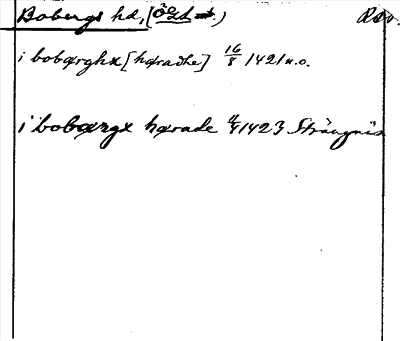 Bobergs hd, (Ögd.)
i bobærghx [hæradhe] 16/8 1421 u.o.
i bobærgx hærade 4/4 1423 Strängnäs